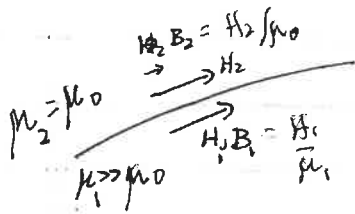 B₂ = H₂/μ₀
→ H₂
μ₂=μ₀
H₁ B₁ = H₁/μ₁
μ₁>>μ₀